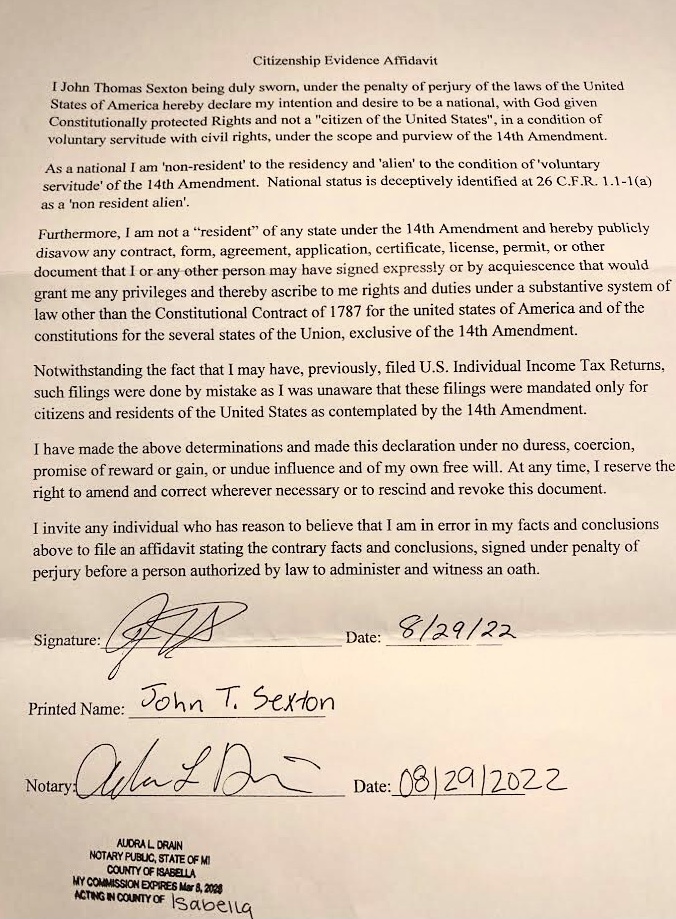 Citizenship Evidence Affidavit
I John Thomas Sexton being duly sworn, under the penalty of perjury of the laws of the United
States of America hereby declare my intention and desire to be a national, with God given
Constitutionally protected Rights and not a "citizen of the United States", in a condition of
voluntary servitude with civil rights, under the scope and purview of the 14th Amendment.
As a national I am 'non-resident' to the residency and 'alien' to the condition of 'voluntary
servitude' of the 14th Amendment. National status is deceptively identified at 26 C.F.R. 1.1-1(a)
as a 'non resident alien'.
Furthermore, I am not a "resident" of any state under the 14th Amendment and hereby publicly
disavow any contract, form, agreement, application, certificate, license, permit, or other
document that I or any other person may have signed expressly or by acquiescence that would
grant me any privileges and thereby ascribe to me rights and duties under a substantive system of
law other than the Constitutional Contract of 1787 for the united states of America and of the
constitutions for the several states of the Union, exclusive of the 14th Amendment.
Notwithstanding the fact that I may have, previously, filed U.S. Individual Income Tax Returns,
such filings were done by mistake as I was unaware that these filings were mandated only for
citizens and residents of the United States as contemplated by the 14th Amendment.
I have made the above determinations and made this declaration under no duress, coercion,
promise of reward or gain, or undue influence and of my own free will. At any time, I reserve the
right to amend and correct wherever necessary or to rescind and revoke this document.
I invite any individual who has reason to believe that I am in error in my facts and conclusions
above to file an affidavit stating the contrary facts and conclusions, signed under penalty of
perjury before a person authorized by law to administer and witness an oath.
Signature: Date: 8/29/22
Printed Name: John T. Sexton
Notary: Date: 08/29/2022
AUDRA L DRAIN
NOTARY PUBLIC, STATE OF MI
COUNTY OF ISABELLA
MY COMMISSION EXPIRES Mar 8, 2028
ACTING IN COUNTY OF Isabella